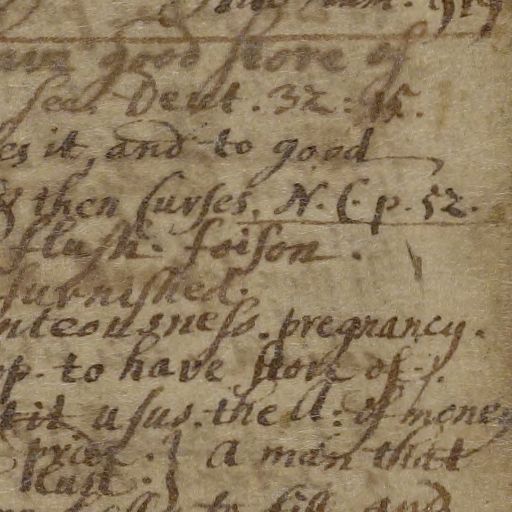 good store of
see. Deut. 32: 15.
es it, and to good
& then Curses. N. C. p. 52.
flush. foison.
furnished.
nteousness. pregnancy.
p. to have store of.
usus. the A: of money
price. } a man that
to fill and